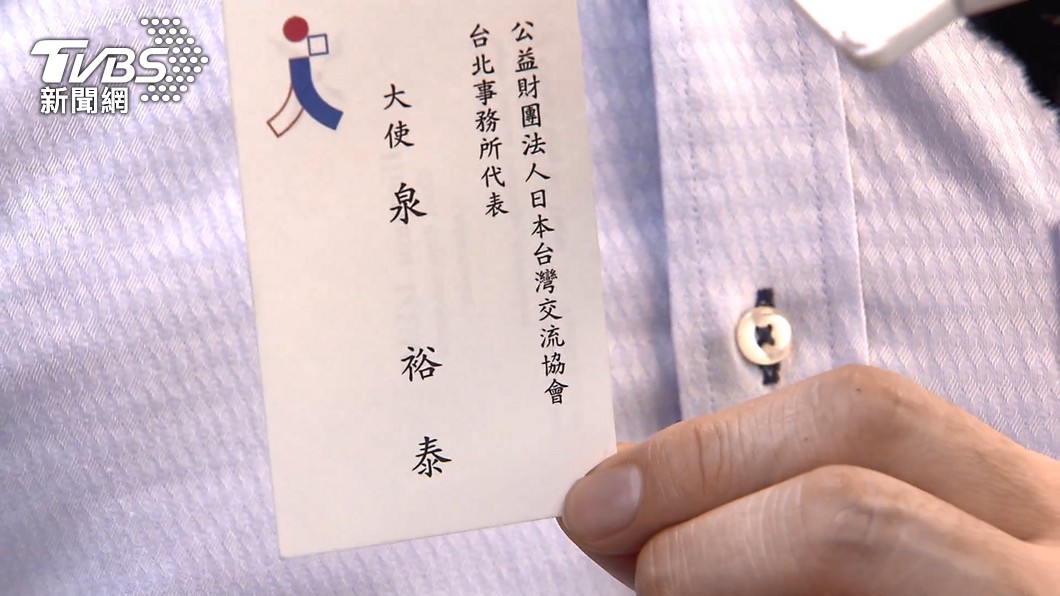 TVBS
新聞網
公益財團法人日本台灣交流協會
台北事務所代表
大使 泉 裕 泰